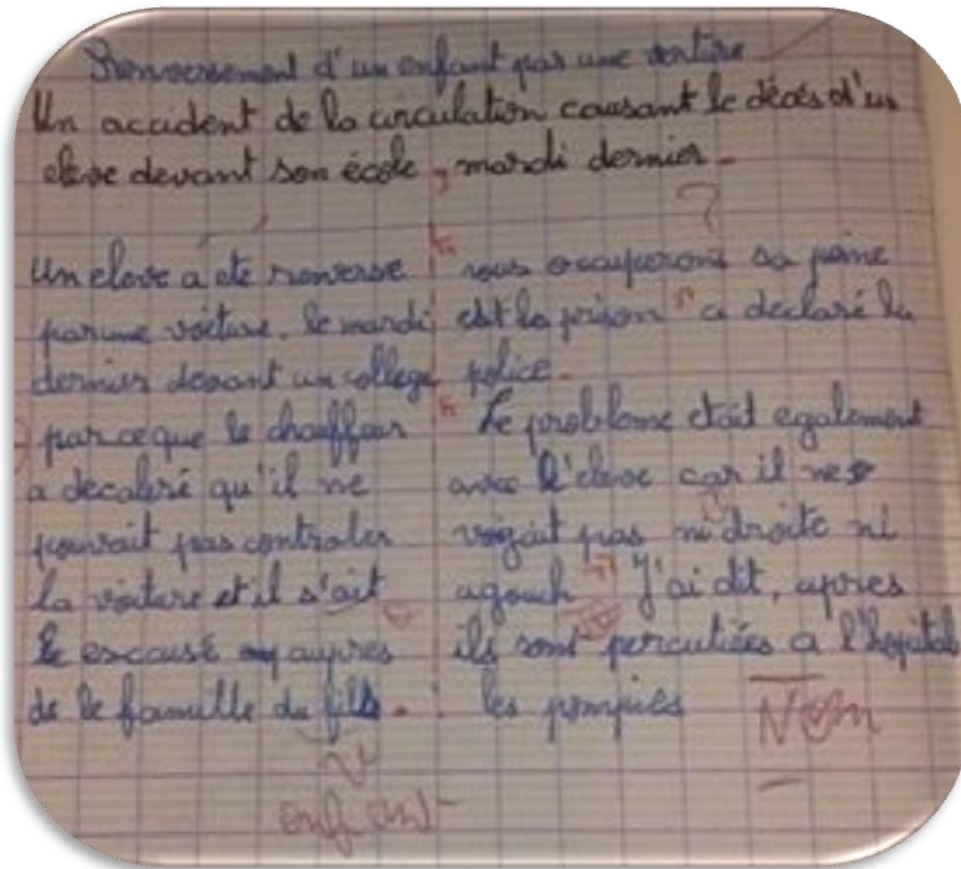 Renversement d'un enfant par une voiture
Un accident de la circulation causant le décès d'un
eleve devant son école, mardi dernier.
?
Un eleve a ete renverse
par une voiture. le mardi
dernier devant un college
parceque le chauffeur
a decaleré qu'il ne
pouvait pas controler
la voiture et il s'ait
excausé aupres
de le famille du fils.
enfant
nous occuperons sa peine
est la prison" a declaré la
police.
Le probleme etait egalement
avec l'eleve car il ne
vogait pas ni droite ni
agouch J'ai dit, apres
ils sont percutiées a l'hopital
les pompiés
Nom